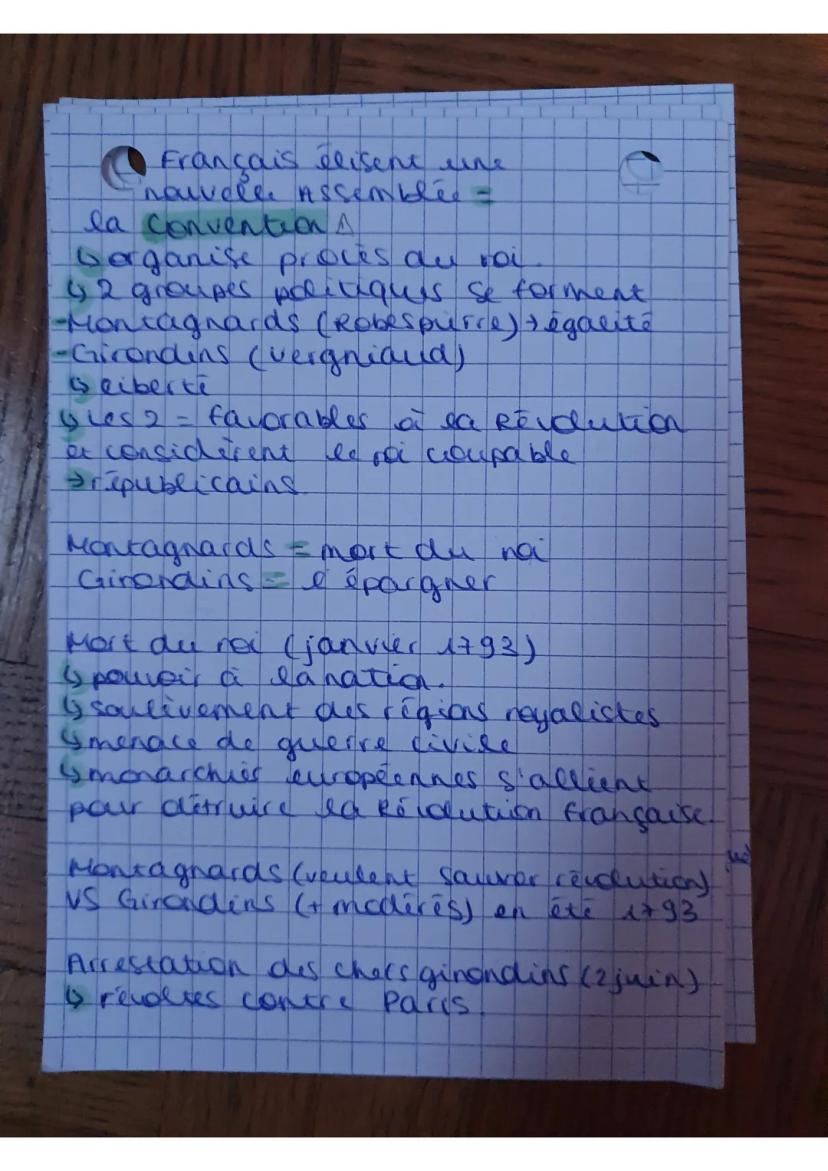 Français élisent une
nouvelle Assemblée =
la Convention
↳ organise procès du roi.
↳ 2 groupes politiques se forment
-Montagnards (Robespierre) → égalité
-Girondins (Vergniaud)
↳ liberté
↳ Les 2 = favorables à la Révolution
et considèrent le roi coupable
→ républicains
Montagnards = mort du roi
Girondins = l'épargner
Mort du roi (janvier 1793)
↳ pouvoir à la nation.
↳ soulèvement des régions royalistes
↳ menace de guerre civile
↳ monarchies européennes s'allient
pour détruire la Révolution française.
Montagnards (veulent sauver révolution)
VS Girondins (+ modérés) en été 1793
Arrestation des chefs girondins (2 juin)
↳ révoltes contre Paris.